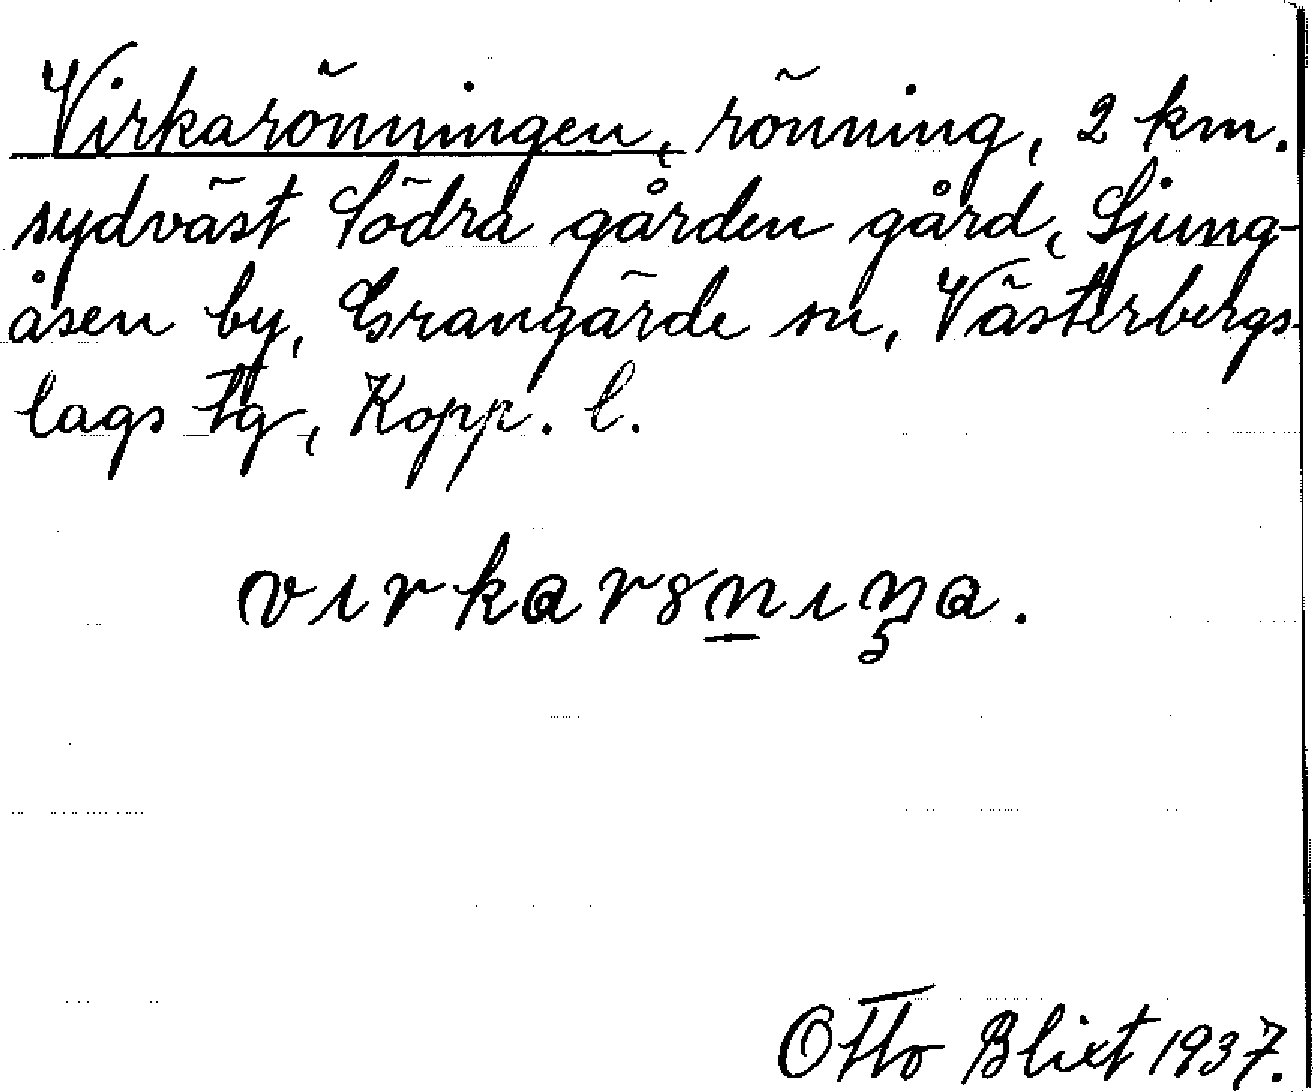 Virkarönningen, rönning, 2 km.
sydväst Södra gården gård, Ljung-
åsen by, Grangärde sn, Västerbergs-
lags tg, Kopp. l.
virkarȣn̲ıŋa.
Otto Blixt 1937.